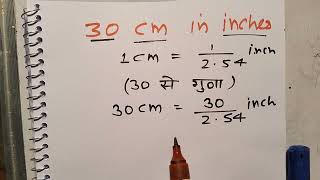 30 cm in inches
1 cm = 1/2.54 inch
(30 से गुणा)
30 cm = 30/2.54 inch